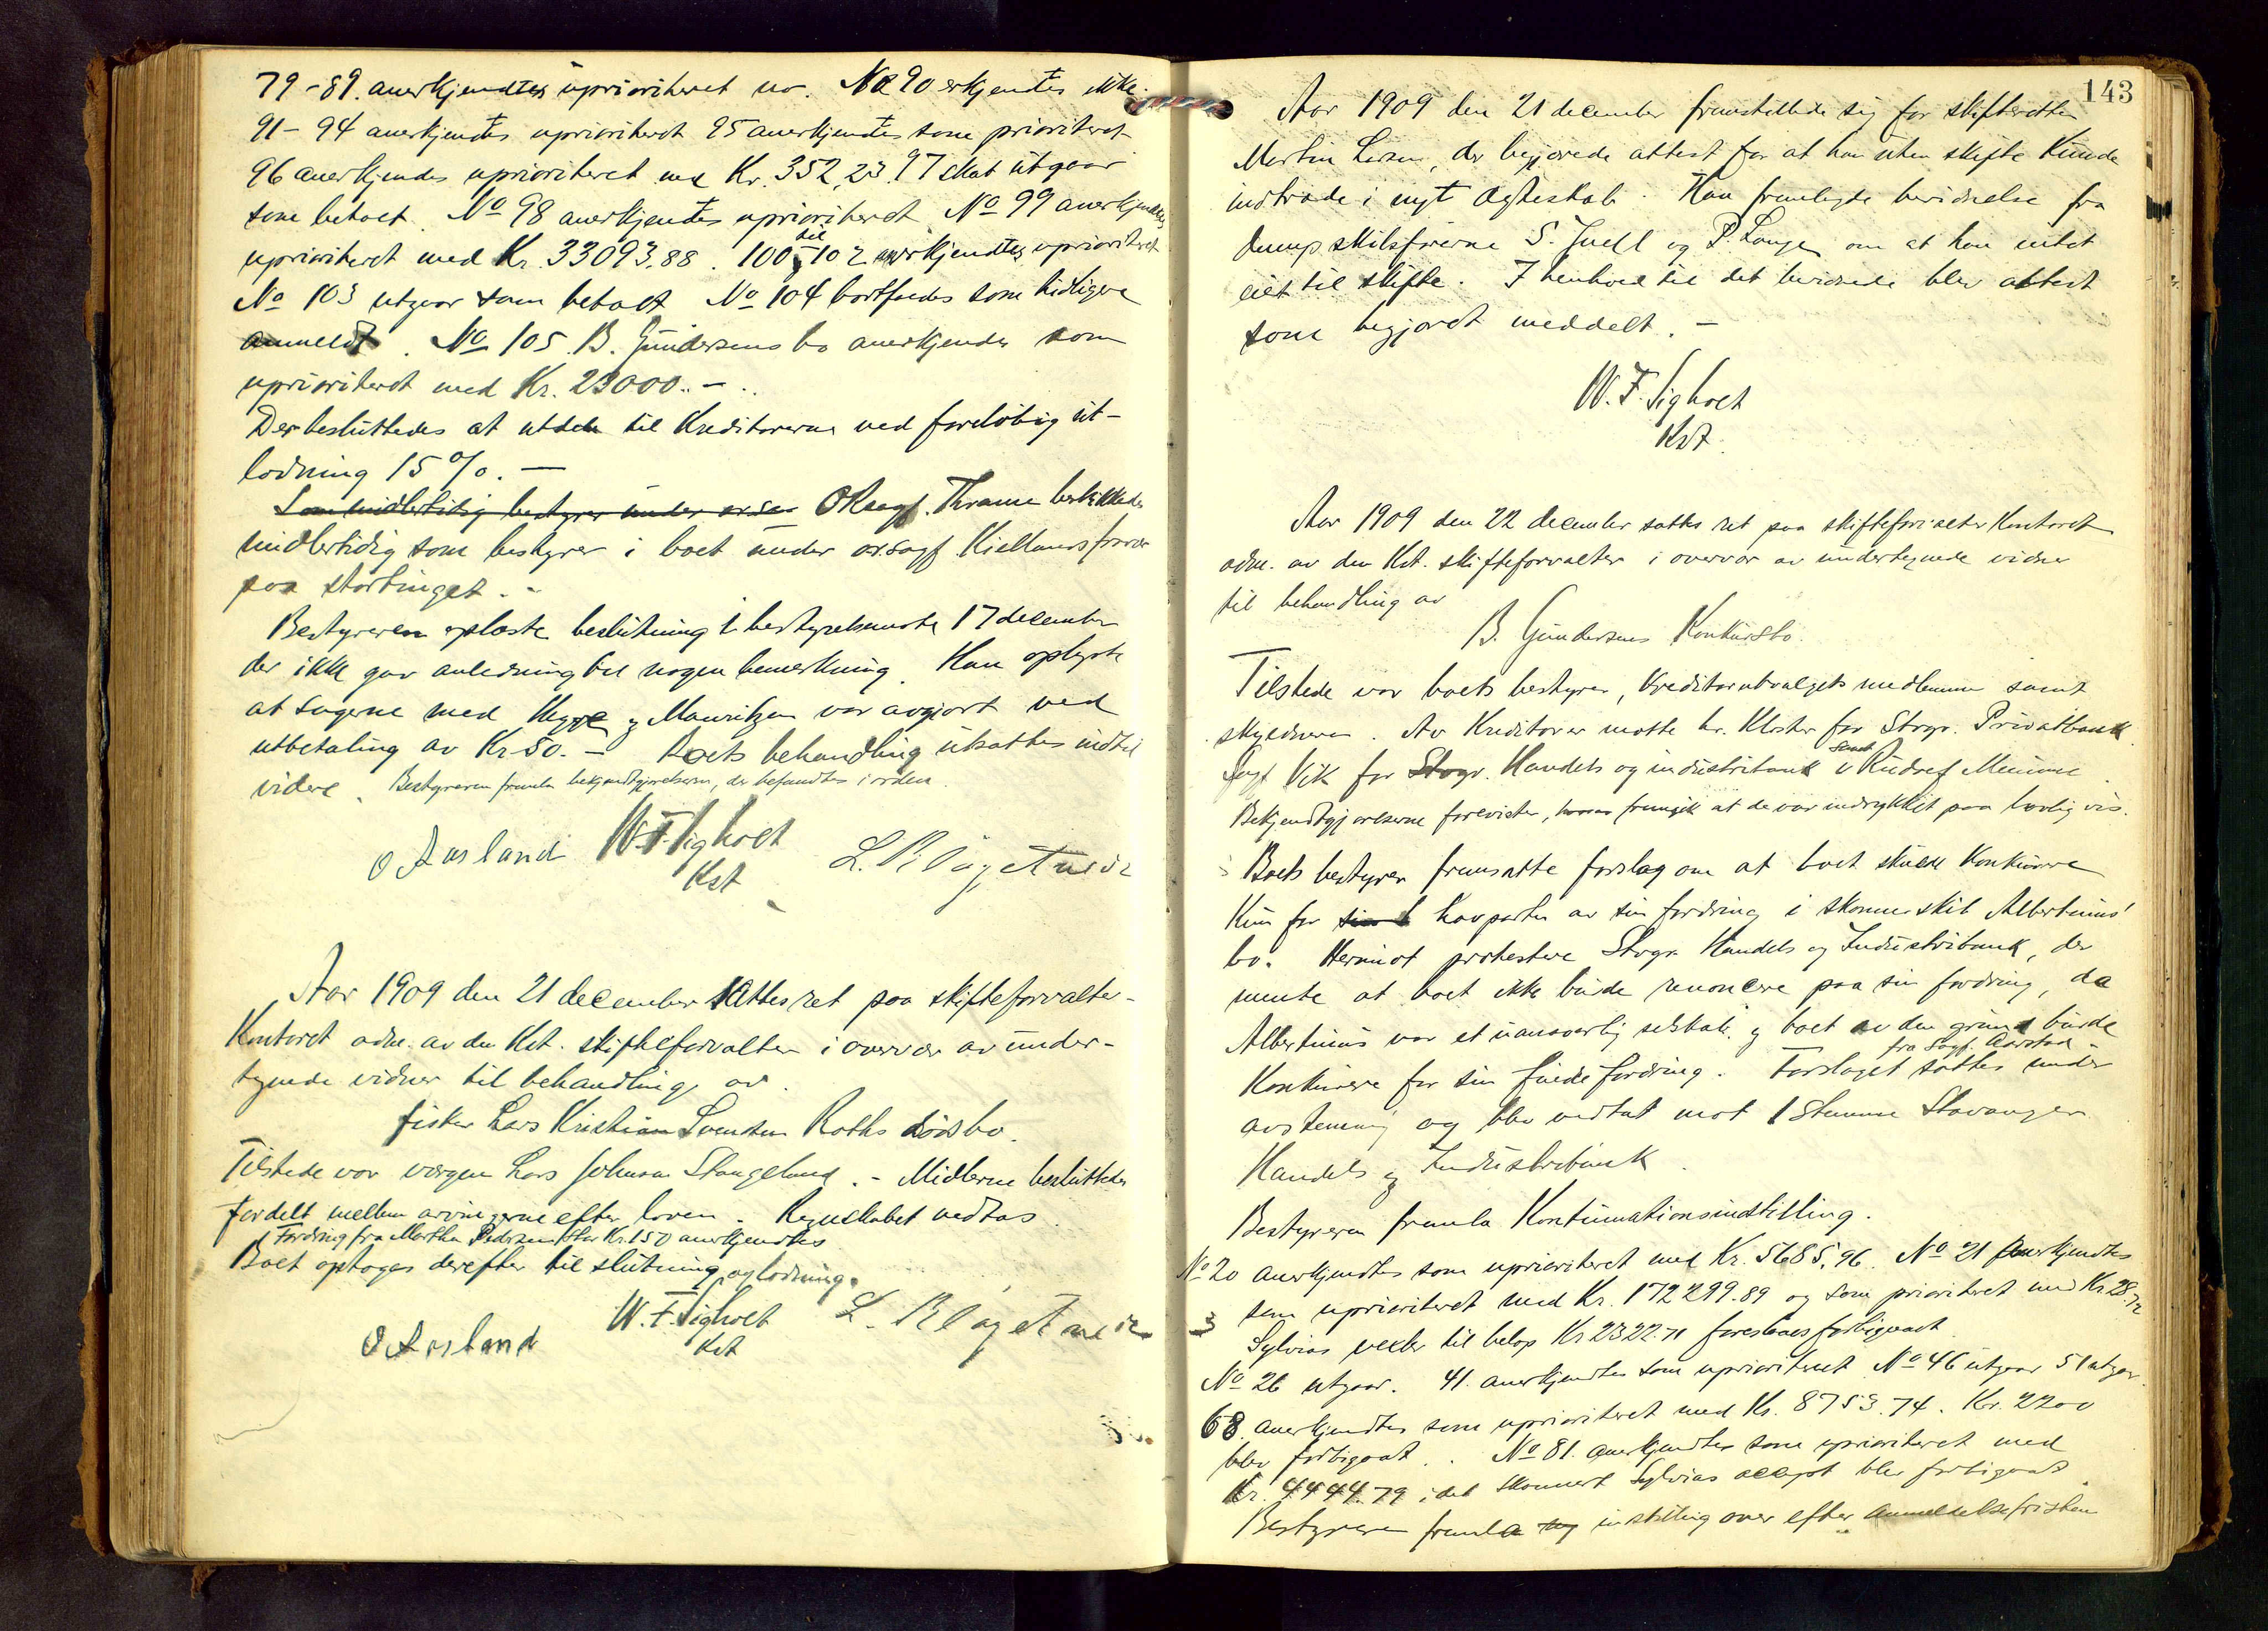 79-89. anerkjendtes uprioriteret no. No 90 erkjendtes ikke.
91-94 anerkjendtes uprioriteret 95 anerkjendtes som prioriteret
96 anerkjendes uprioriteret med Kr. 352,23. 97 skat utgaar
som betalt. No 98 anerkjendtes uprioriteret No 99 anerkjendtes
uprioriteret med Kr. 33093.88. 100 til 102 anerkjendtes uprioriteret
No 103 utgaar som betalt No 104 bortfaldes som tidligere
anmeldt. No 105 B. Gundersens bo anerkjendes som
uprioriteret med Kr. 23000.-.
Der besluttedes at utdele til Kreditorerne ved foreløbig ut-
lodning 15%. —
Som midlertidig bestyrer under o.r.sa. ORsagf. Thrane beskikkedes
midlertidig som bestyrer i boet under or.sagf Kiellands fravær
paa stortinget. -
Bestyreren oplæste beslutning i bestyrelsesmøte 17 december
der ikke gav anledning til nogen bemerkning. Han oplyste
at sagerne med Hegge og Mauritzen var avgjort ved
utbetaling av Kr 50.- Boets behandling utsattes indtil
videre. Bestyreren fremla bekjendtgjørelserne, der befandtes i orden.
O Aasland W.F. Sigholt
Kst
Aar 1909 den 21 december sattes ret paa skifteforvalter-
Kontoret adm. av den Kst. skifteforvalter i overvær av under-
tegnede vidner til behandling av
fisker Lars Kristian Svendsen Roths dødsbo.
Tilstede var vergen Lars Johnsen Stangeland. - Midlerne besluttedes
fordelt mellem arvingerne efter loven. Regnskabet vedtas.
Fordring fra Martha Pedersen stor Kr. 150 anerkjendtes
Boet optoges derefter til slutning og lodning.
O Aasland W.F. Sigholt
Kst
143
Aar 1909 den 21 december fremstillede sig for skifteretten
Martin Larsen, der begjærede attest for at han uten skifte kunde
indtræde i nyt egteskab. Han fremlagte bevidnelse fra
dampskibsførerne S. Juell og P. Lange om at han intet
eiet til skifte. I henhold til det bevidnede blev attest
som begjæret meddelt. -
W.F. Sigholt
Kst.
Aar 1909 den 22 december sattes ret paa skifteforvalter Kontoret
adm. av den Kst. skifteforvalter i overvær av undertegnede vidner
til behandling av
B. Gundersens Konkursbo.
Tilstede var boets bestyrer, Kreditorutvalgets medlemmer samt
skyldneren. Av Kreditorer møtte hr. Kloster for Stvgr. Privatbank
Sagf Vik for Stvgr. Handels og industribank samt
Bekjendtgjørelserne forevistes, hvorav fremgik at de var indrykket paa lovlig vis.
Boets bestyrer fremsatte forslag om at boet skulde Konkurrere
Kun for halvparten av sin fordring i skonnerskib Albertinus'
bo. Herimot protesterte Stvgr. Handels og Industribank, der
mente at boet ikke burde renoncere paa sin fordring, da
Albertinus var et uansvarlig selskab og boet av den grund burde
fra sagf. Aarstad
Konkurrere for sin fulde fordring. Forslaget sattes under
avstemning og blev vedtat mot 1 stemme Stavanger
Handels og Industribank.
Bestyreren fremla Kontinuationsindstilling.
No 20 anerkjendtes som uprioriteret med Kr. 5685,96. No 21 anerkjendtes
som uprioriteret med Kr. 172299.89 og som prioriteret med Kr. 28.72
Sylvias veksler til beløp Kr 2322.71 foreslaaes forbigaaet
No 26 utgaar. 41. anerkjendtes som uprioriteret No 46 utgaar 51 utgaar.
68. anerkjendtes som uprioriteret med Kr. 8753.74. Kr. 2200
blev forbigaaet. No 81. anerkjendtes som uprioriteret med
Kr. 4444.79 idet skonnert Sylvias accept blev forbigaaet.
Bestyreren fremla indstilling over efter anmeldelsesfristen